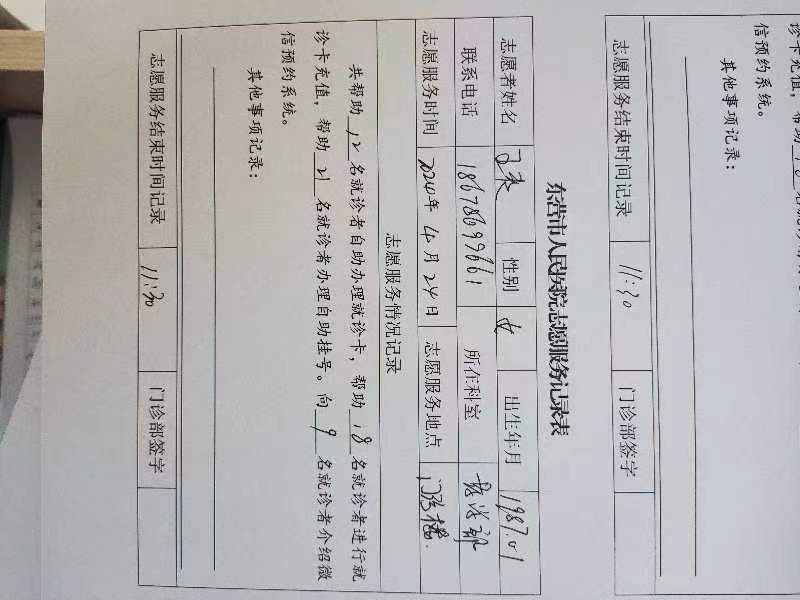 诊卡充值，帮助
信预约系统。
其他事项记录：
志愿服务结束时间记录 11:30 门诊部签字
东营市人民医院志愿服务记录表
志愿者姓名 性别 女 出生年月 1987.01
联系电话 18678699661 所在科室
志愿服务时间 2024年4月24日 志愿服务地点 门诊楼.
志愿服务情况记录
共帮助 12 名就诊者自助办理就诊卡，帮助 18 名就诊者进行就
诊卡充值，帮助 21 名就诊者办理自助挂号。向 9 名就诊者介绍微
信预约系统。
其他事项记录：
志愿服务结束时间记录 11:30 门诊部签字